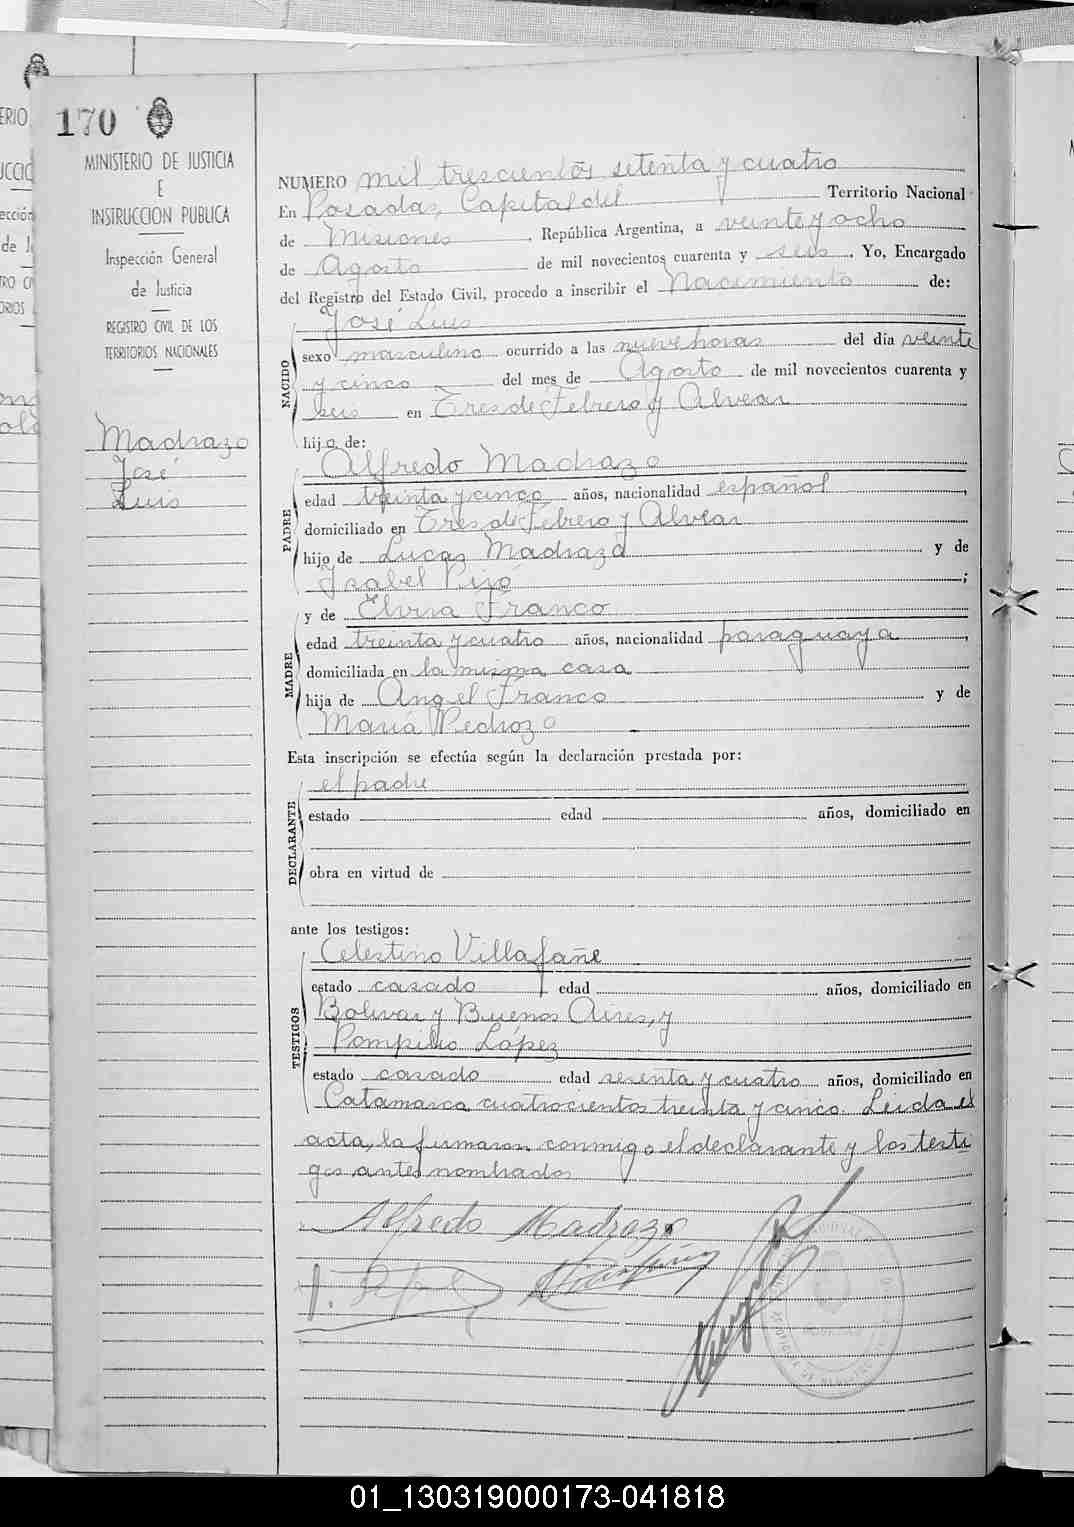 170
MINISTERIO DE JUSTICIA
E
INSTRUCCION PUBLICA
Inspección General
de Justicia
REGISTRO CIVIL DE LOS
TERRITORIOS NACIONALES
Madrazo
José
Luis
NUMERO mil trescientos setenta y cuatro
En Posadas, Capital del Territorio Nacional
de Misiones, República Argentina, a veinte y ocho
de Agosto de mil novecientos cuarenta y seis. Yo, Encargado
del Registro del Estado Civil, procedo a inscribir el Nacimiento de:
José Luis
NACIDO
sexo masculino ocurrido a las nueve horas del día veinte
y cinco del mes de Agosto de mil novecientos cuarenta y
seis en Tres de Febrero y Alvear
hijo de:
Alfredo Madrazo
PADRE
edad treinta y cinco años, nacionalidad español,
domiciliado en Tres de Febrero y Alvear
hijo de Lucas Madrazo y de
Isabel ;
y de Elvira Franco
MADRE
edad treinta y cuatro años, nacionalidad paraguaya,
domiciliada en la misma casa
hija de Angel Franco y de
María Pedrozo
Esta inscripción se efectúa según la declaración prestada por:
el padre
DECLARANTE
estado edad años, domiciliado en
obra en virtud de
ante los testigos:
Celestino Villafañe
TESTIGOS
estado casado edad años, domiciliado en
Bolivar y Buenos Aires, y
Pompilio López
estado casado edad sesenta y cuatro años, domiciliado en
Catamarca cuatrocientos treinta y cinco. Leida el
acta, la firmaron conmigo el declarante y los testi
gos antes nombrados
Alfredo Madrazo
01_130319000173-041818